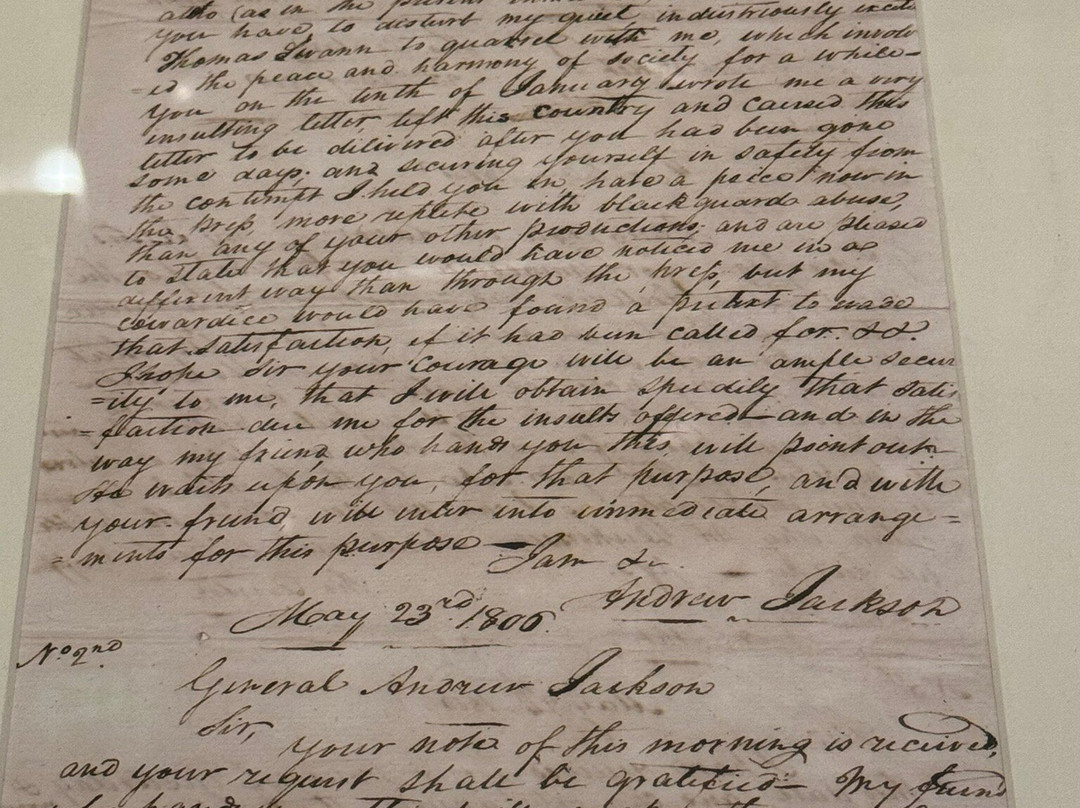 also (as in the present
you have, to disturb my quiet, industriously excite
Thomas Swann to quarrel with me, which involv
=ed the peace and harmony of society for a while-
you on the tenth of January wrote me a very
insulting letter, left this country and caused this
letter to be delivered after you had been gone
some days. and securing yourself in safety from
the contempt I held you in, have a peece now in
the press, more replete with blackguard abuse,
than any of your other productions; and are pleased
to state that you would have noticed me in a
different way than through the press, but my
cowardice would have found a pretext to evade
that satisfaction, if it had been called for. &&.
I hope Sir your Courage will be an ample secur
=ity to me, that I will obtain speedily that satis
=faction due me for the insults offered-and in the
way my friend who hands you this, will point out-
He waits upon you, for that purpose, and with
your friend, will enter into immediate arrange=
=ments for this purpose-
I am &c.
Andrew Jackson
May 23rd. 1806.
No. 2nd.
General Andrew Jackson
Sir,
your note of this morning is received,
and your request shall be gratified- My friend